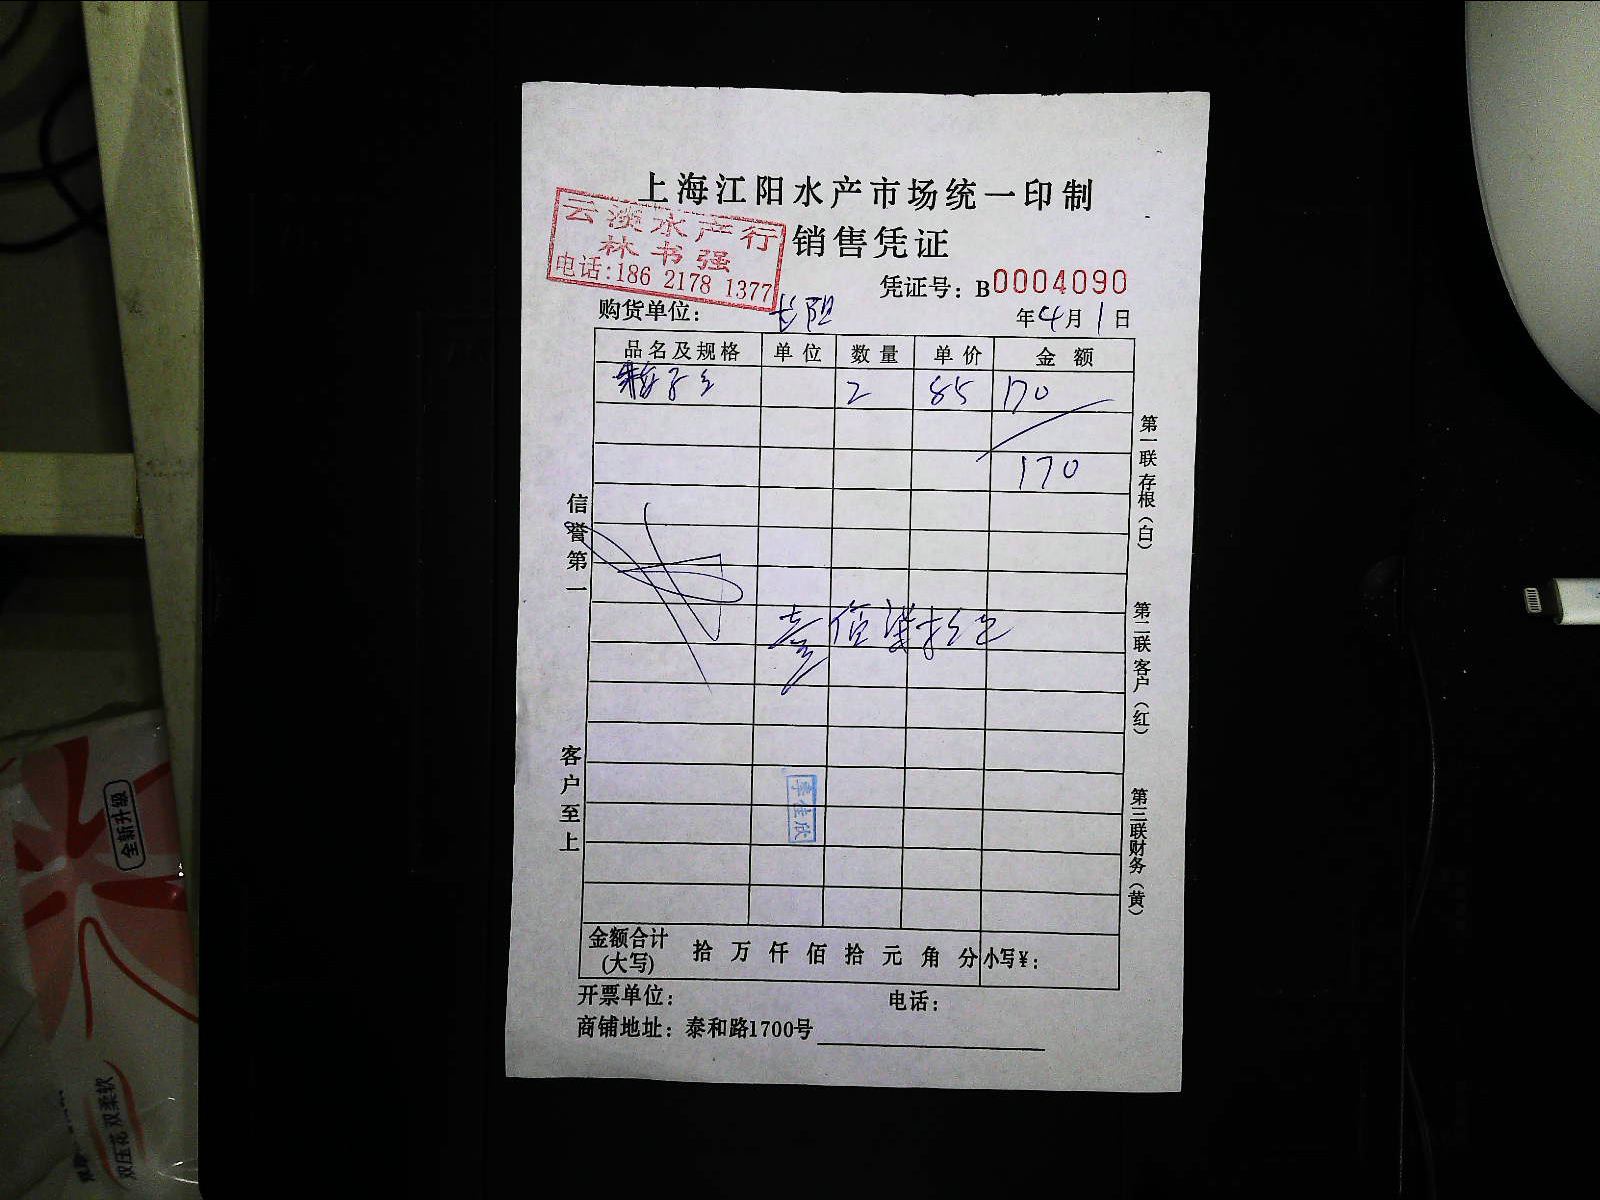 上海江阳水产市场统一印制
云淡水产行
林书强
电话:186 2178 1377
销售凭证
凭证号：B0004090
购货单位：长阳 年4月1日
品名及规格 单位 数量 单价 金额
2 85 170
170
壹佰柒拾元
信誉第一
客户至上
第一联存根（白）
第二联客户（红）
第三联财务（黄）
金额合计(大写) 拾 万 仟 佰 拾 元 角 分 小写¥：
开票单位： 电话：
商铺地址：泰和路1700号
全新升级
双压花 双柔软